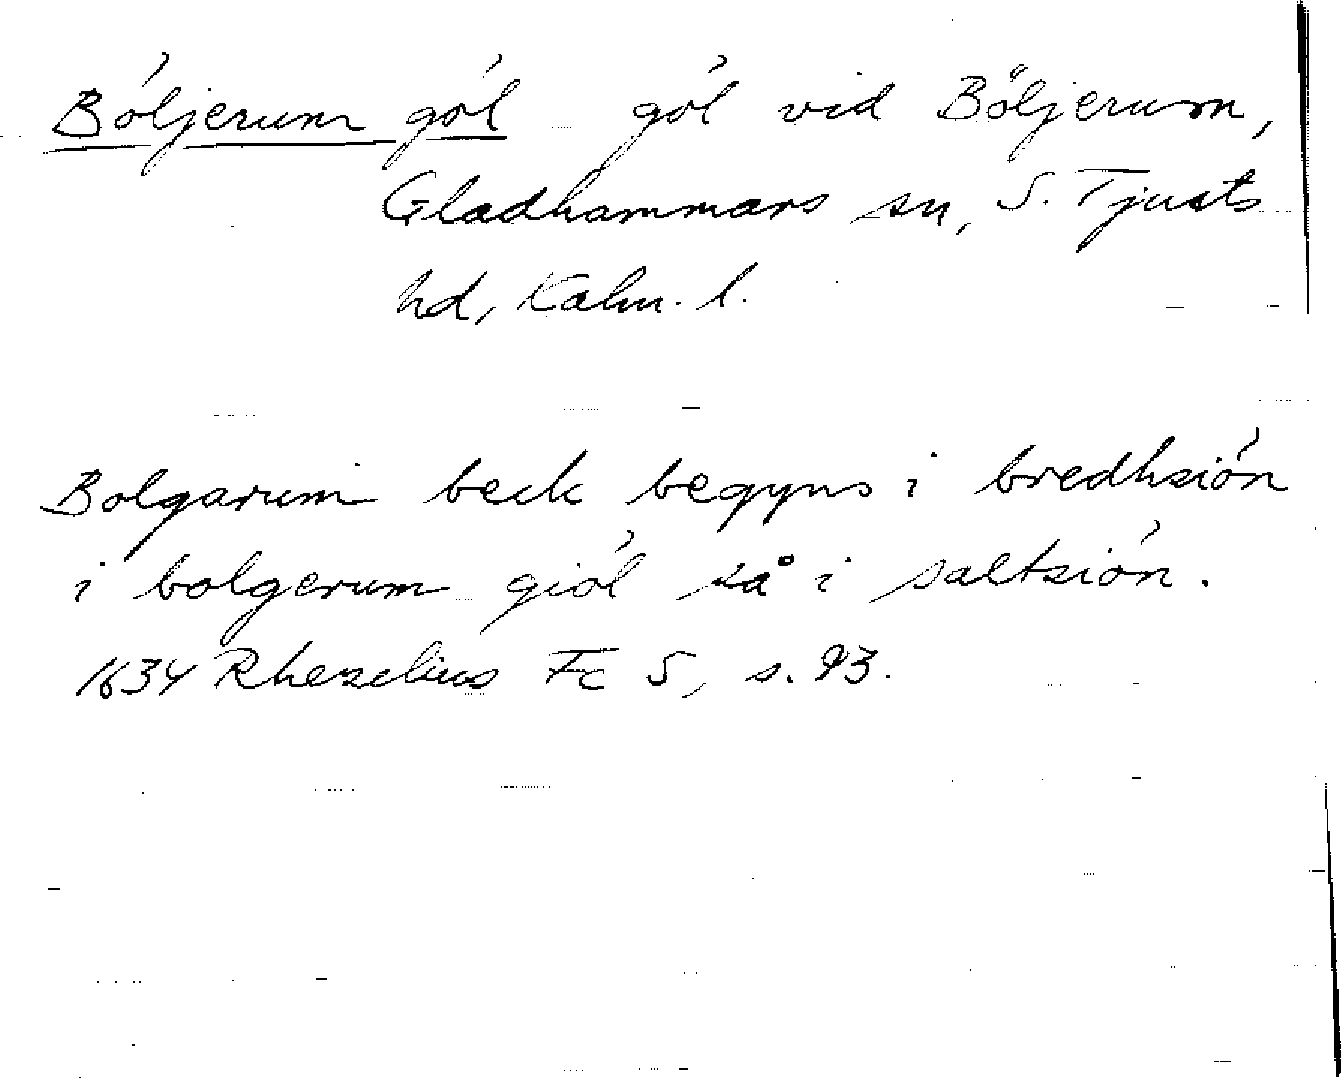 Böljerum göl göl vid Böljerum,
Gladhammars sn, S. Tjusts
hd, Kalm. l.
Bolgarum beck begyns i bredhsiön
i bolgerum giöl så i saltsiön.
1634 Rhezelius Fc 5, s. 93.